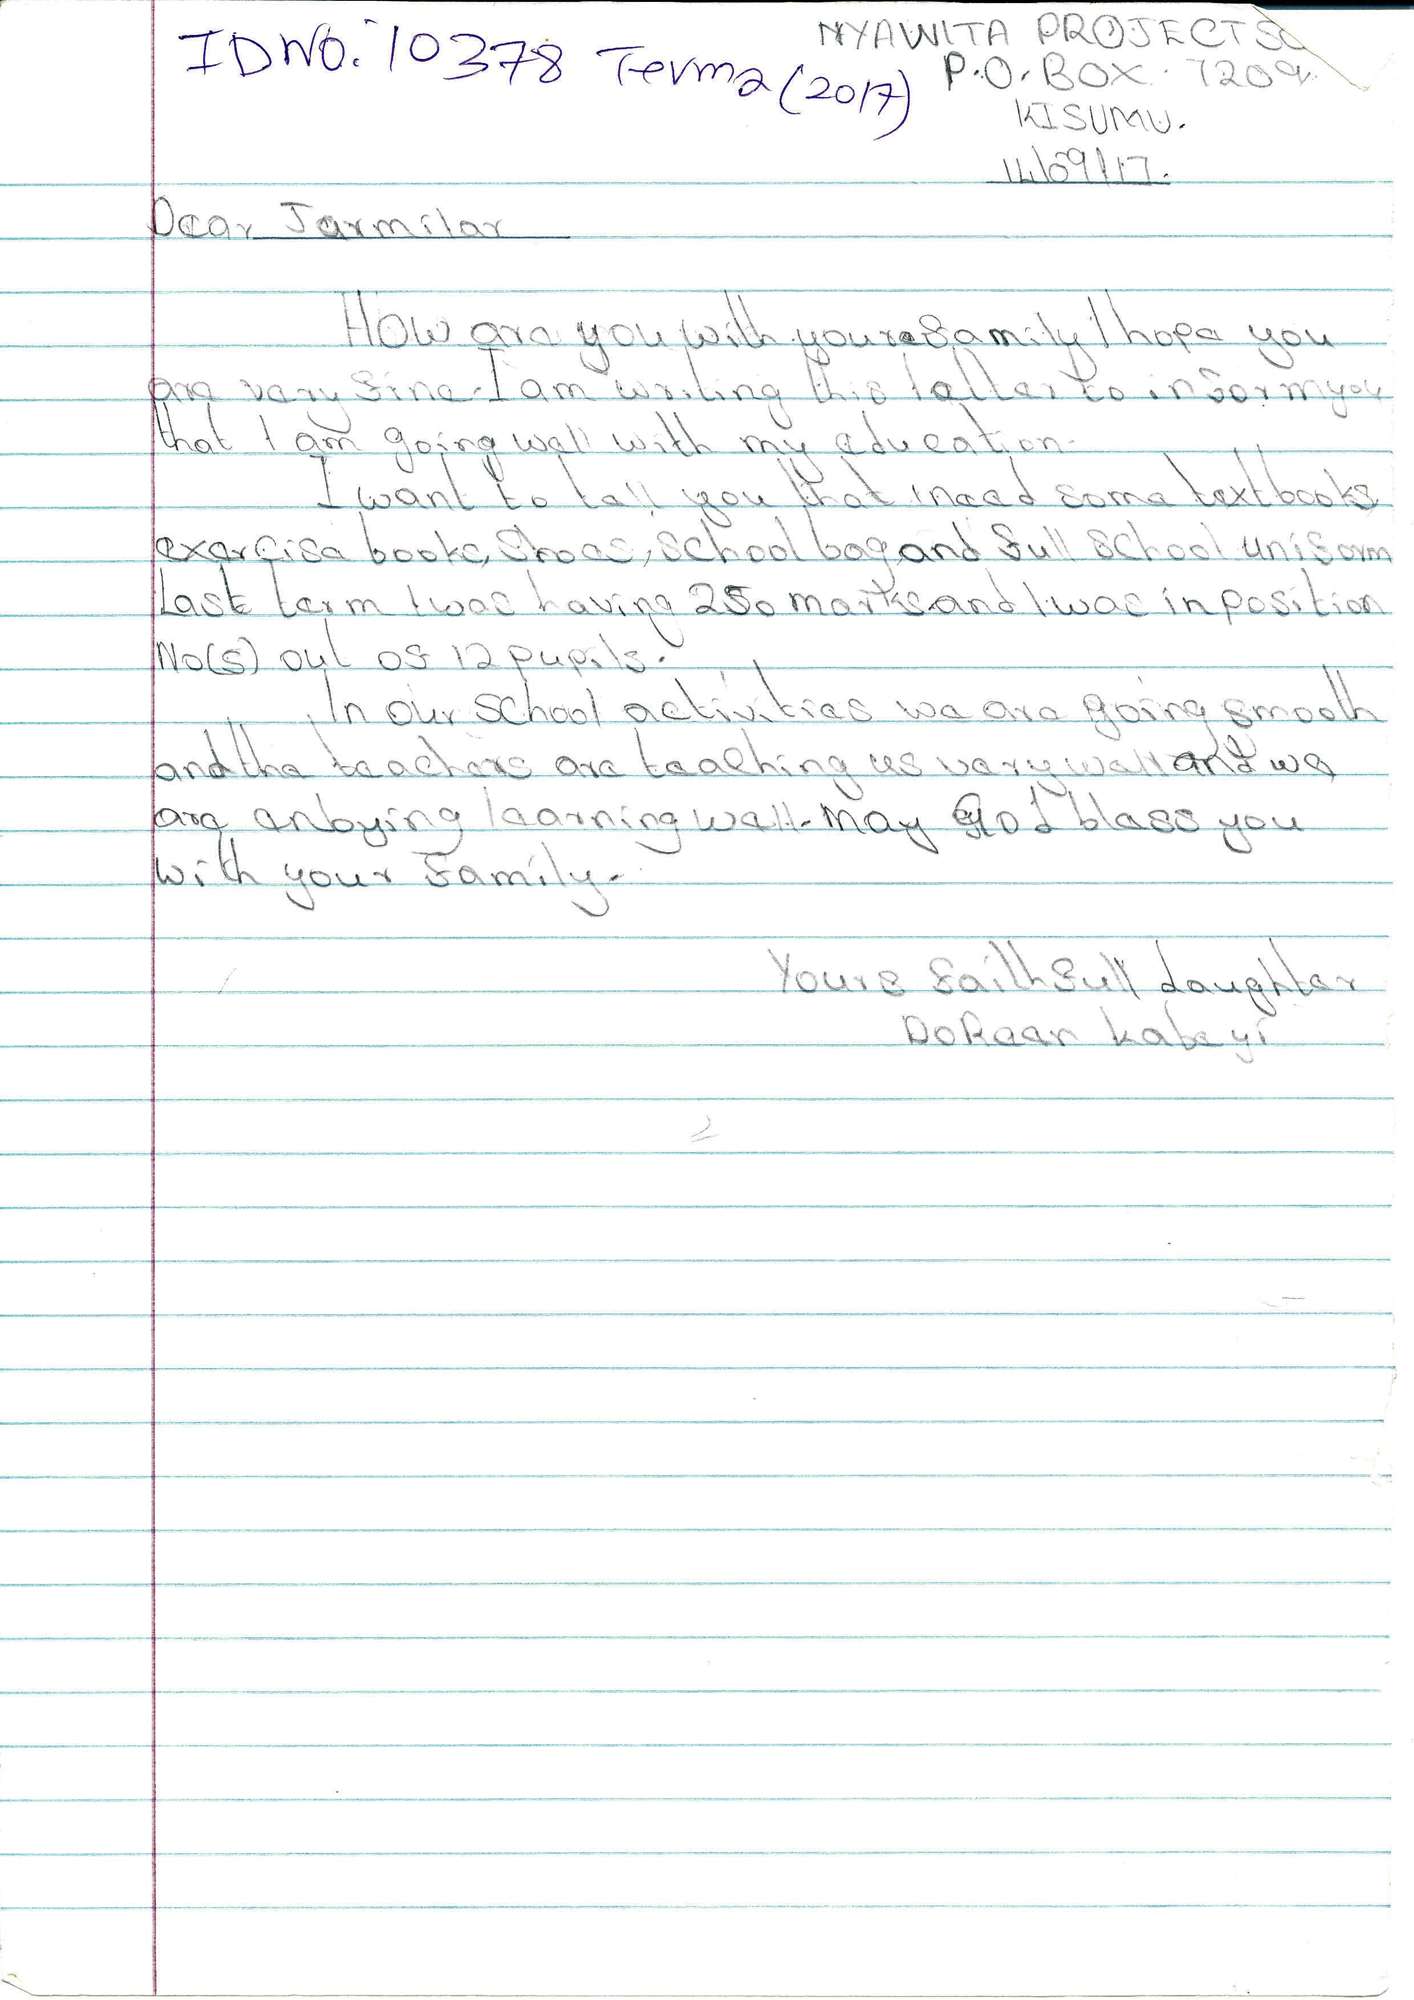 ID NO: 10378 Term 2 (2017)
NYAWITA PROJECTS
P.O. BOX. 7209
KISUMU.
14/09/17.
Dear Jarmilar
How are you with your family I hope you
are very fine. I am writing this letter to inform you
that I am going well with my education.
I want to tell you that i need some textbooks
exercise books, Shoes, School bag and full school uniform
Last term I was having 250 marks and I was in position
No(5) out of 12 pupils.
In our school activities we are going smooth
and the teachers are teaching us very well and we
are enboying learning well. May God bless you
with your family.
Yours faithfull daughter
DoReen kabeyi